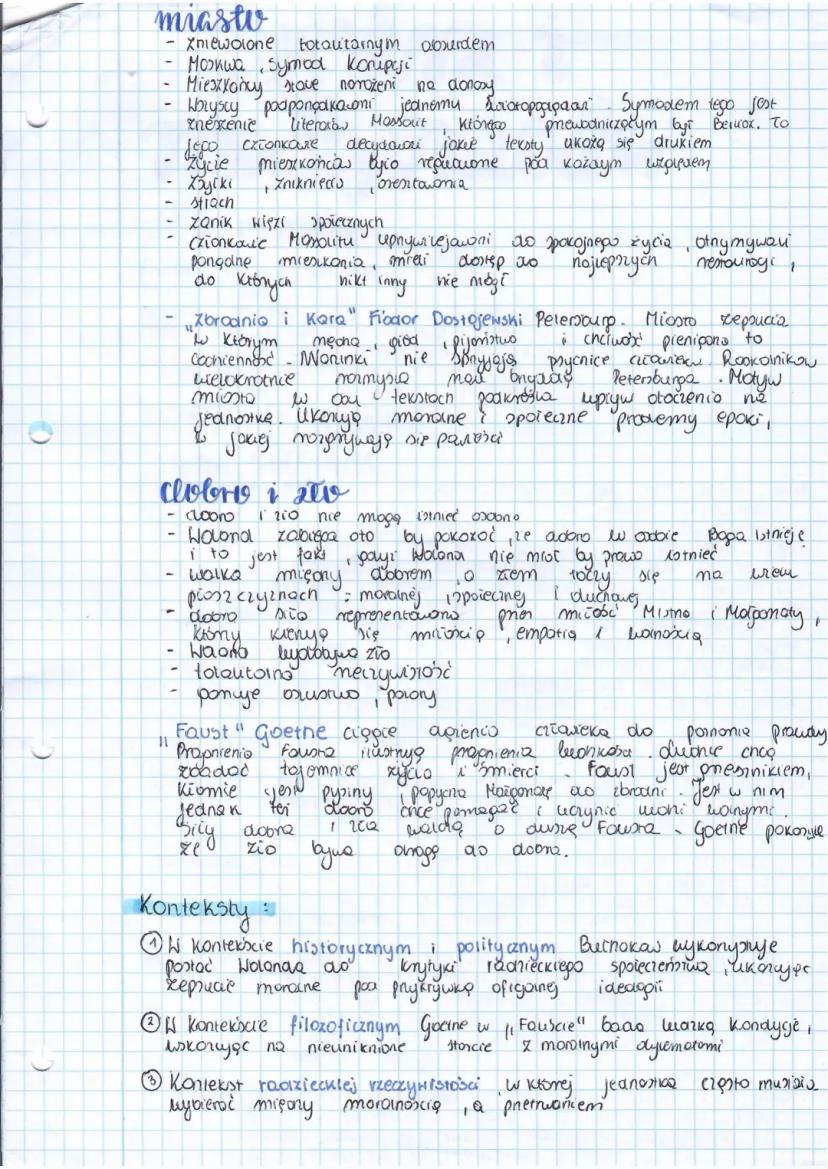 miasto
- zniewolone totalitarnym absurdem
- Moskwa, symbol korupcji
- Mieszkańcy stale narażeni na donosy
- Wszyscy podporządkowani jednemu światopoglądowi. Symbolem tego jest
zrzeszenie literatów Massolit, którego przewodniczącym był Berlioz. To
jego członkowie decydowali jakie teksty ukażą się drukiem
- życie mieszkańców było regulowane pod każdym względem
- zsyłki, zniknięcia, aresztowania
- strach
- zanik więzi społecznych
- członkowie Massolitu uprzywilejowani do spokojnego życia, otrzymywali
porządne mieszkania, mieli dostęp do najlepszych restauracji,
do których nikt inny nie mógł
- „Zbrodnia i Kara" Fiodor Dostojewski Petersburg. Miasto zepsucia
w którym nędza, głód, pijaństwo i chciwość pieniądza to
codzienność. Warunki nie sprzyjają psychice człowieka. Raskolnikow
wielokrotnie rozmyśla nad brzydotą Petersburga. Motyw
miasta w obu tekstach podkreśla wpływ otoczenia na
jednostkę. Ukazują moralne i społeczne problemy epoki,
w jakiej rozgrywają się powieści
dobro i zło
- dobro i zło nie mogą istnieć osobno
- Woland zabiega oto by pokazać, że dobro w osobie Boga istnieje
i to jest fakt, gdyż Woland nie miał by prawa istnieć
- walka między dobrem, a złem toczy się na wielu
płaszczyznach: moralnej, społecznej i duchowej
- dobra siła reprezentowana przez miłość Mistrza i Małgorzaty,
którzy kierują się miłością, empatią i wolnością
- Woland wydobywa zło
- totalitarna rzeczywistość
- panuje oszustwo, pozory
„Faust" Goethe ciągłe dążenia człowieka do poznania prawdy
Pragnienia Fausta ilustrują pragnienia ludzkości. Ludzie chcą
zbadać tajemnice życia i śmierci. Faust jest grzesznikiem,
kłamie jest pyszny, popycha Małgorzatę do zbrodni. Jest w nim
jednak też dobro chce pomagać i uczynić ludzi wolnymi.
Siły dobra i zła walczą o duszę Fausta. Goethe pokazuje
że zło bywa drogą do dobra.
Konteksty:
① W kontekście historycznym i politycznym Bułhakow wykorzystuje
postać Wolanda do krytyki radzieckiego społeczeństwa, ukazując
zepsucie moralne pod przykrywką oficjalnej ideologii
② W kontekście filozoficznym Goethe w „Fauście" bada ludzką kondycję,
wskazując na nieuniknione starcie z moralnymi dylematami
③ Kontekst radzieckiej rzeczywistości, w której jednostka często musiała
wybierać między moralnością, a przetrwaniem